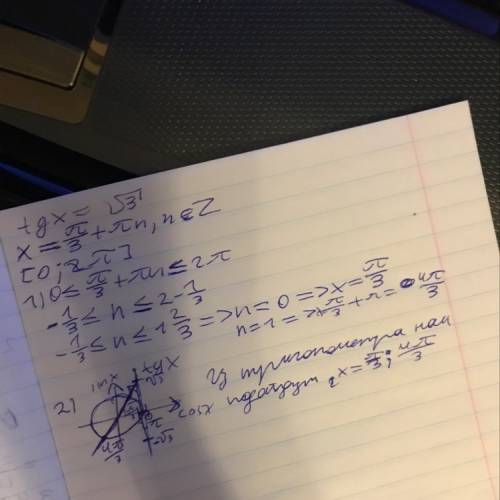 tgx = √3
x = π/3 + πn, n∈Z
[0; 2π]
1) 0 ≤ π/3 + πn ≤ 2π
-1/3 ≤ n ≤ 2 - 1/3
-1/3 ≤ n ≤ 1 2/3 => n = 0 => x = π/3
n = 1 => π/3 + π = 4π/3
2) sinx tgx √3
cosx
4π/3 -√3
Из тригонометра нам
подойдут x = π/3; 4π/3